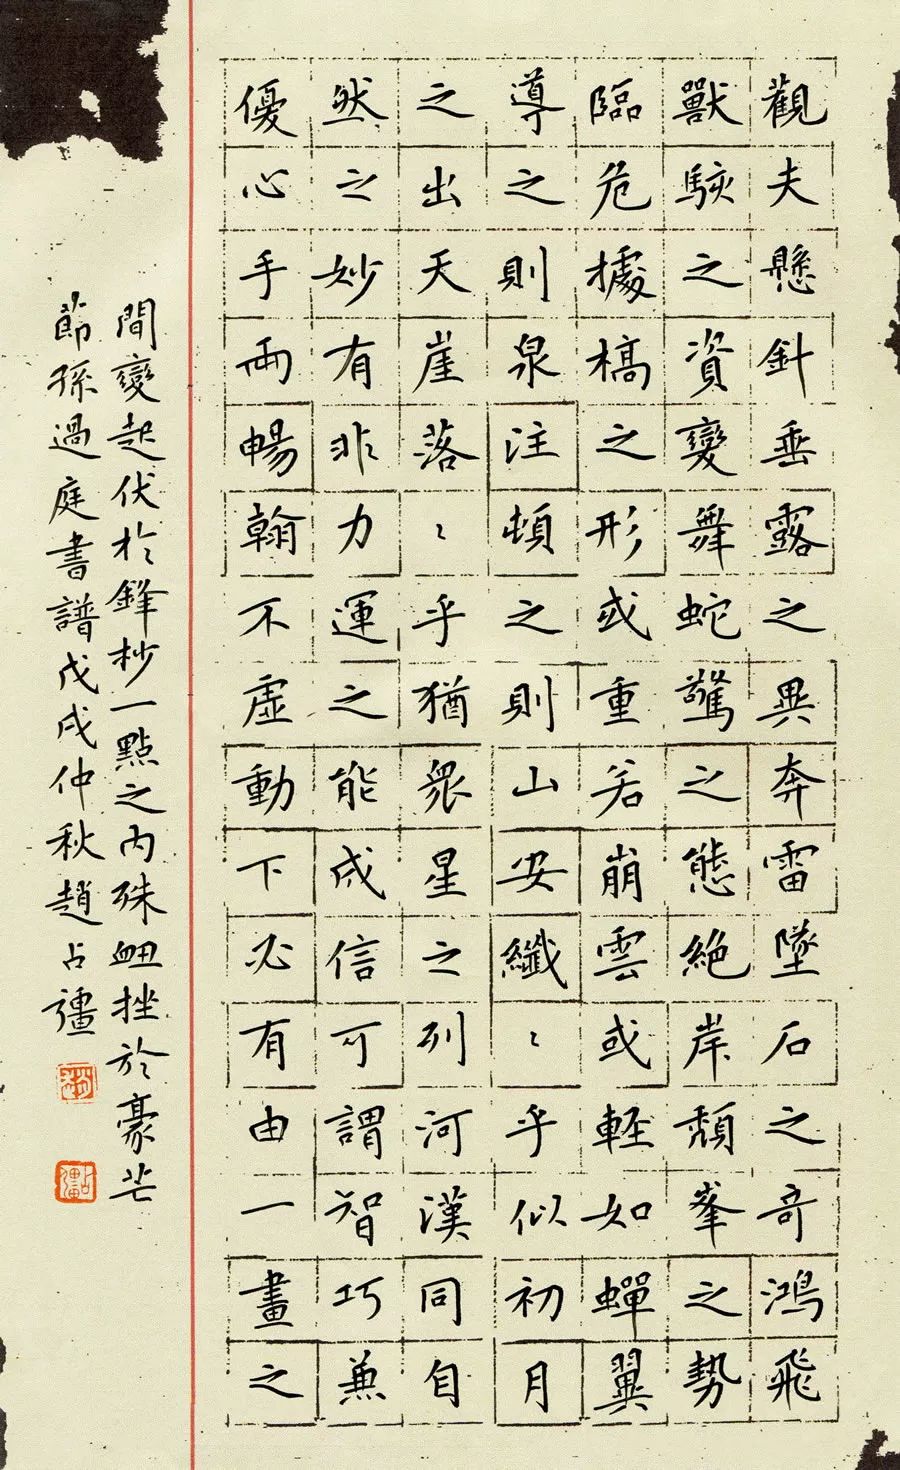 觀夫懸針垂露之異奔雷墜石之奇鴻飛
獸駭之資變舞蛇驚之態絶岸頹峯之勢
臨危據槁之形或重若崩雲或輕如蟬翼
導之則泉注頓之則山安纖〻乎似初月
之出天崖落〻乎猶衆星之列河漢同自
然之妙有非力運之能成信可謂智巧兼
優心手兩暢翰不虛動下必有由一畫之
間變起伏於鋒杪一點之内殊衄挫於豪芒
節孫過庭書譜戊戌仲秋趙占彊